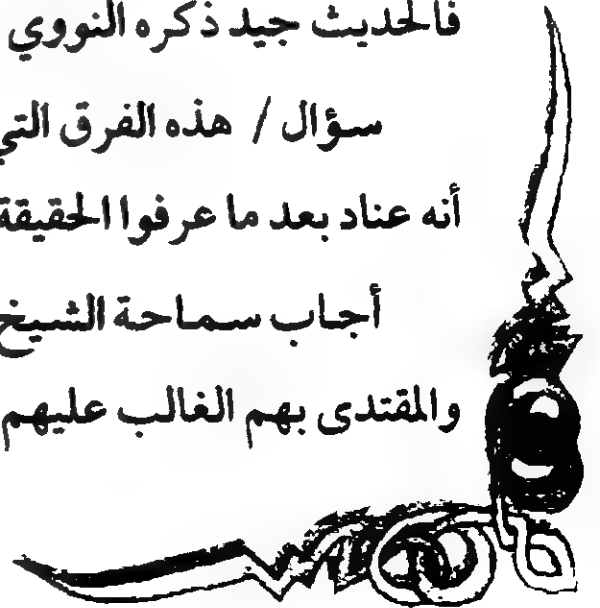 فالحديث جيد ذكره النووي
سؤال / هذه الفرق التي
أنه عناد بعد ما عرفوا الحقيقة
أجاب سماحة الشيخ
والمقتدى بهم الغالب عليهم